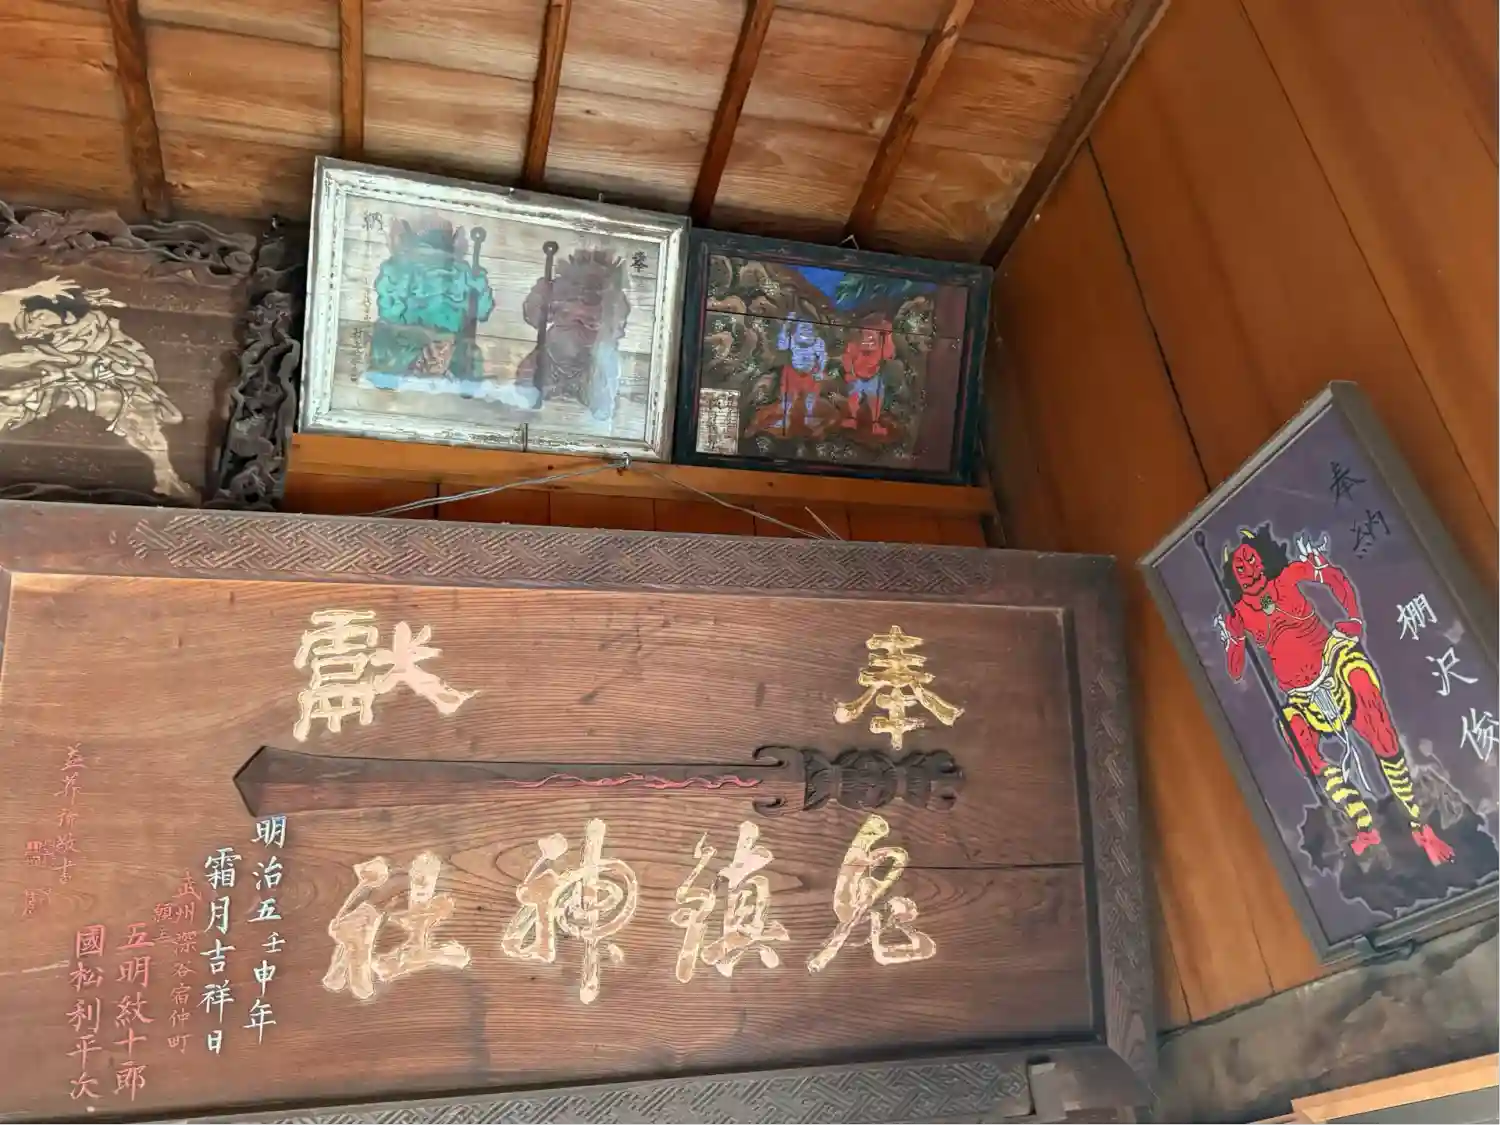 奉獻
鬼鎮神社
明治五壬申年
霜月吉祥日
武州深谷宿仲町
願主
五明紋十郎
國松利平次
奉納
奉納
棚沢俊